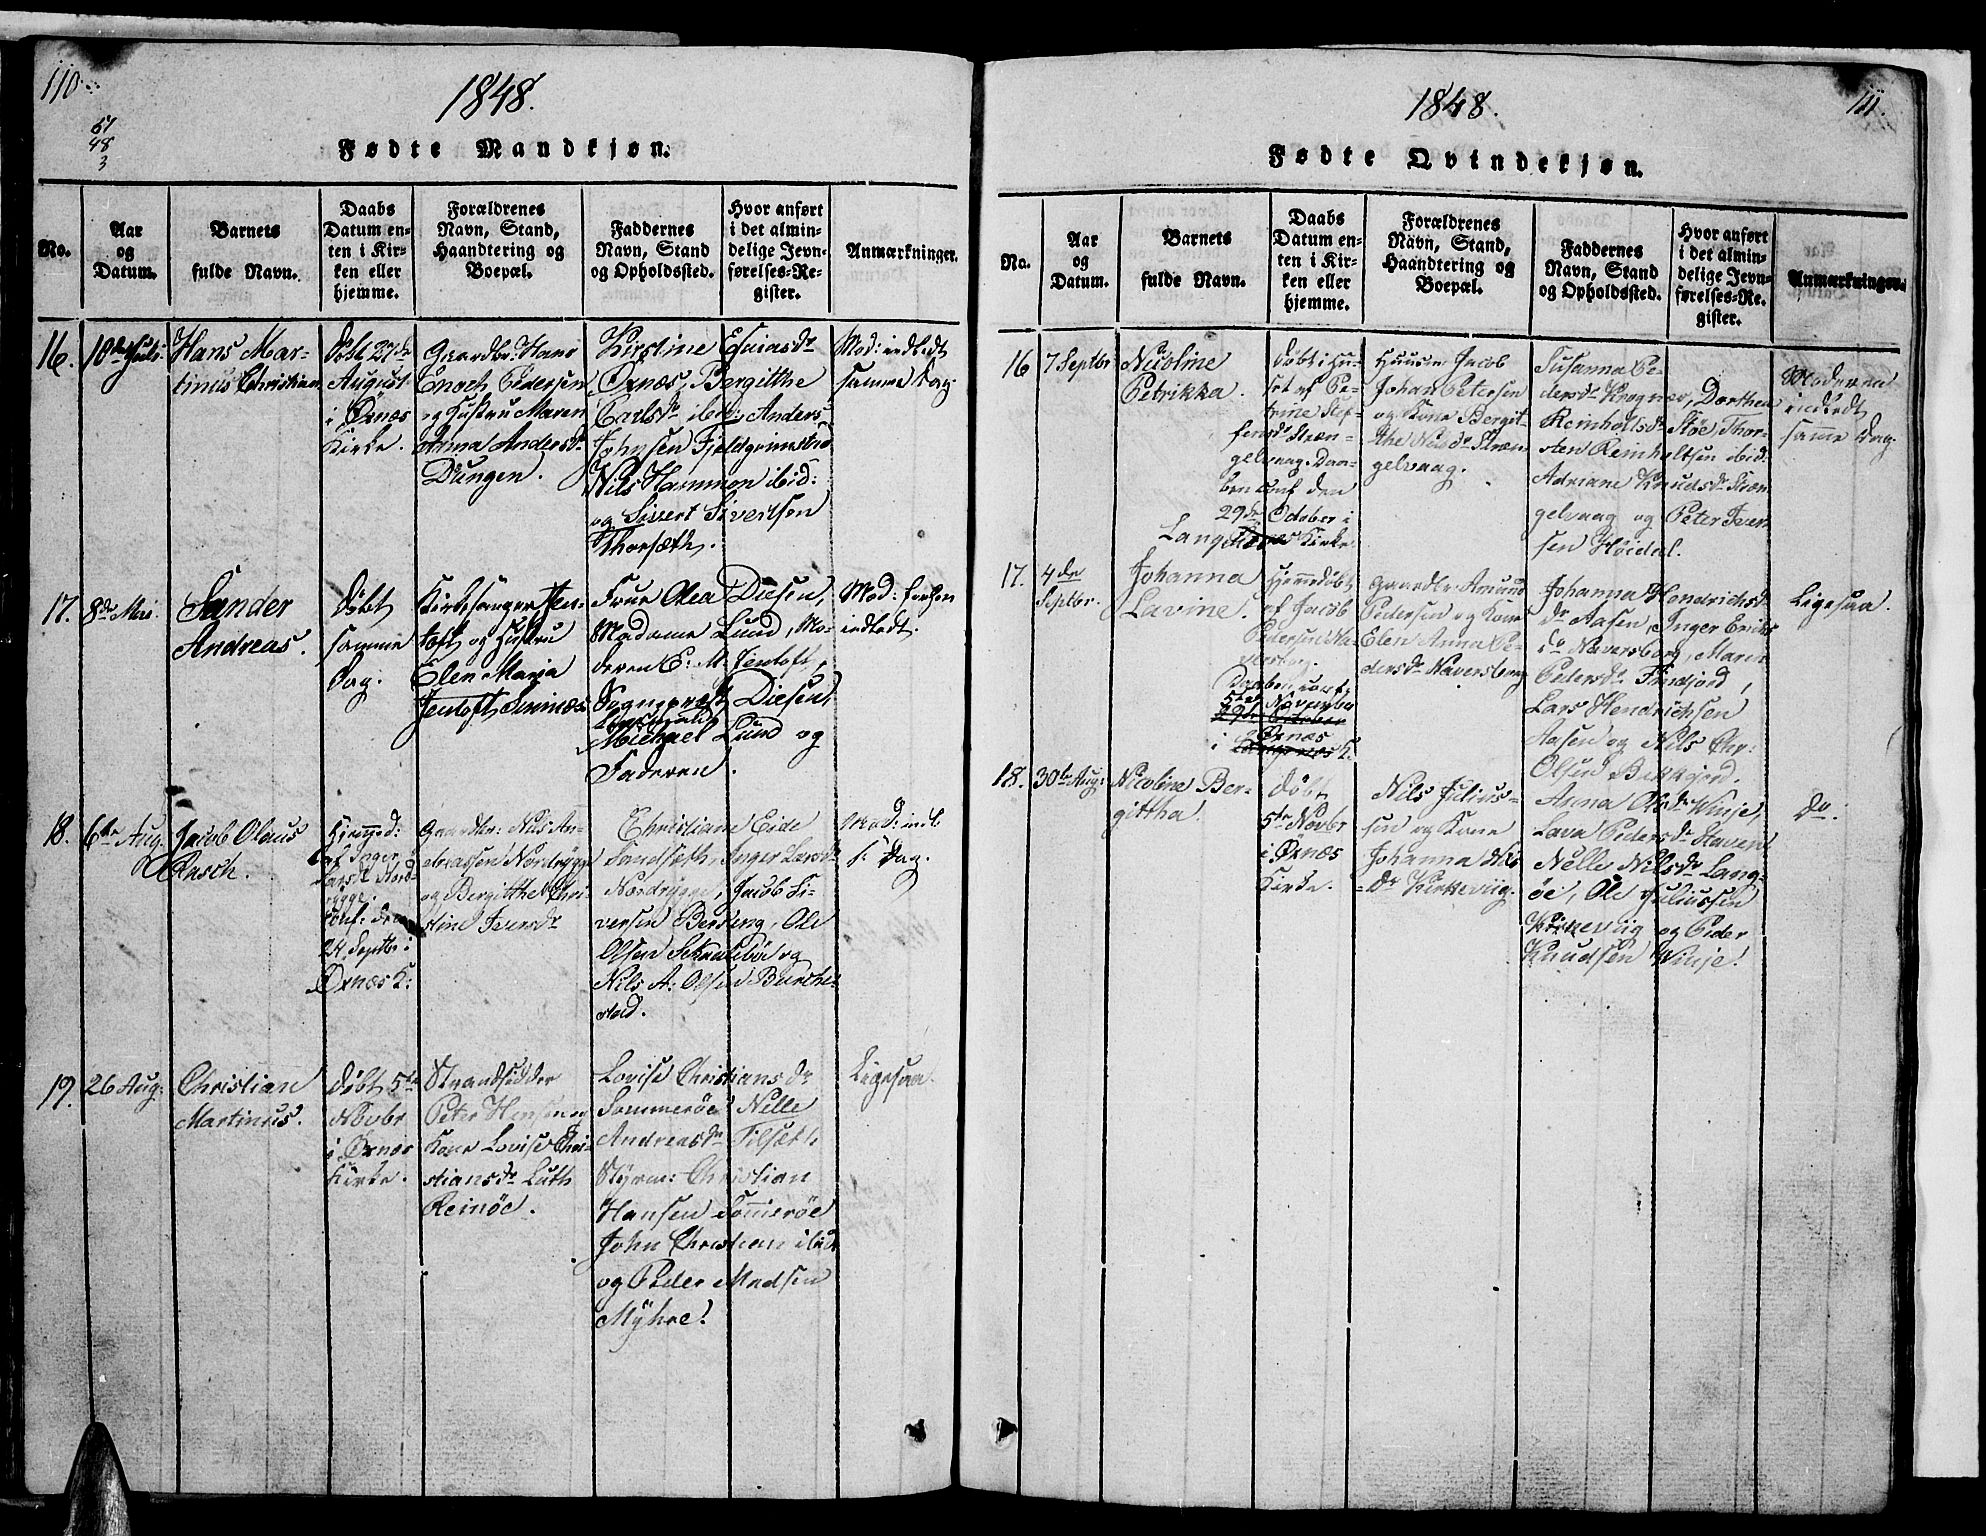 110
1848.
51
48
3
Fødte Mandkjøn.
No.
Aar
og
Datum.
Barnets
fulde Navn.
Daabs
Datum en-
ten i Kir-
ken eller
hjemme.
Forældrenes
Navn, Stand,
Haandtering og
Boepæl.
Faddernes
Navn, Stand
og Opholdssted.
Hvor anført
i det almin-
delige Jevn-
førelses-Re-
gister.
Anmærkninger.
16.
18de Juli
Hans Mar-
tinus Christian
Døbt 27de
August
i Øxnæs
Kirke.
Gaardbr: Hans
Enoch Pedersen
og Hustru Maren
Anna Andersdr
Dungen.
Kirstine Esaiasdr
Øxnæs, Bergitthe
Carlsdr ibid: Anders
Johnsen Fjeldgrimstad
Nils Hammon ibid:
og Sivert Sivertsen
Thorsæth.
Mod: indledt
samme Dag.
17.
8de Mai.
Sander
Andreas.
døbt
samme
Dag.
Kirkesanger Jen-
toft og Hustru
Elen Maria
Jentoft Sminæs
Frue Olea Diesen,
Madame Lund, Mo-
deren E: M. Jentoft,
Sogneprest Diesen,
Michael Lund og
Faderen.
Mod:
indledt.
18.
6te Aug.
Jacob Olaus
Rasch.
Hjemmed:
af Inger
Larsdr Nord-
rygge.
Conf: den
24 Septbr i
Øxnæs K:
Gaardbr: Nils An-
dreassen Nordrygge
og Bergitthe Chri-
stine Iversdr
Christiane Eide
Sandsæth, Inger Larsdr
Nordrygge, Jacob Si-
versen Berseng, Ole
Olsen Skavlebøe og
Nils A: Olsen
stad.
Mod: indl.
s: Dag.
19.
26 Aug:
Christian
Martinus.
døbt 5te
Novbr
i Øxnæs
Kirke.
Strandsidder
Peter Hansen og
Kone Lovise Chri-
stiansdr Luth
Reinöe.
Lovise Christiansdr
Sommerøe Nelle
Andreasdr Tilsæth
Styrm: Christian
Hansen Sommerøe
John Christian ibid:
og Peder Madsen
Mÿhre!
Ligesaa.
111.
1848.
Fødte Qvindekjøn.
No.
Aar
og
Datum.
Barnets
fulde Navn.
Daabs
Datum en-
ten i Kir-
ken eller
hjemme.
Forældrenes
Navn, Stand,
Haandtering og
Boepæl.
Faddernes
Navn, Stand
og Opholdssted.
Hvor anført
i det almin-
delige Jevn-
førelses-Re-
gister.
Anmærkninger.
16
7 Septbr
Nicoline
Petrikka.
døbt i Hu-
set af Pe-
trine Stef-
fensdr Stræn-
gelvaag. Daa-
ben conf den
29de October i
Langenæs Kirke.
Huusm Jacob
Johan Petersen
og Kone Bergit-
the Nilsdr Stræn-
gelvaag.
Susanna Pe-
dersdr Krognæs, Dorthea
Reinholtsdr Støe Thor-
sten Reinholtsen ibid:
Adriane Knudsdr Stræn
gelvaag og Peter Iver-
sen Høidal.
Moderen
indledt
samme Dag.
17.
4de
Septbr.
Johanna
Lavine.
Hjemmedøbt
af Jacob
Pedersen Na-
versberg.
Daaben conf.
5te November
29de October
i Øxnæs
Langenæs K:
Gaardbr: Amund
Pedersen og Kone
Elen Anna Pe-
dersdr Naversberg
Johanna Hendrichs-
dr Aasen, Inger Eriks
dr Naversberg, Maren
Pedersdr Finsfjord,
Lars Hendrichsen
Aasen og Nils Chr:
Olsen Bekkjord.
Ligesaa.
18.
30te Aug:
Nicoline Ber-
gittha.
døbt
5te Novbr
i Øxnæs
Kirke.
Nils Julius-
sen og Kone
Johanna Nils
dr Kirkeviig.
Anna Olsdr Winje,
Lava Pedersdr Staven
Nelle Nilsdr Lang-
öe, Ole Juliussen
Kirkeviig og Peder
Knudsen Winje!
Do.